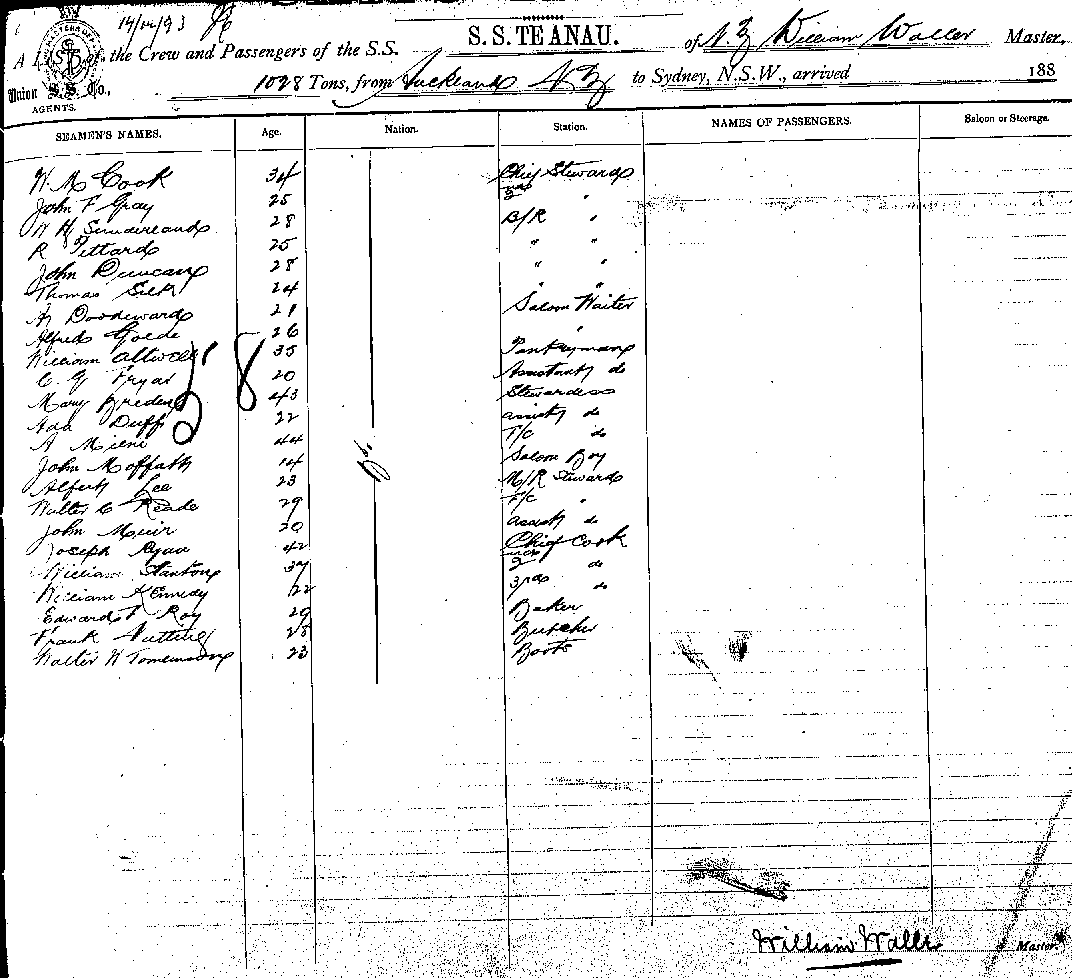 14/10/93
A List of the Crew and Passengers of the S.S. S.S. TE ANAU. of N.Z William Waller Master,
Union S.S. Co., AGENTS.
1028 Tons, from Auckland NZ to Sydney, N.S.W., arrived 188
SEAMEN'S NAMES. Age. Nation. Station. NAMES OF PASSENGERS. Saloon or Steerage.
W. M. Cook 34 Chief Steward
John F Gray 25 2nd "
W H Sunderland 28 B/R "
R Pettard 25 " "
John Duncan 28 " "
Thomas Silk 24 " "
Doodeward 21 Saloon Waiter
Alfred Goede 26 "
William Attwell 35 Pantryman
C. G. Fryar 20 Assistant do
Mary Breden 43 Stewardess
Ada Duff 22 assist do
A Milne 44 T/C do
John Moffath 14 Saloon Boy
Albert Lee 23 M/R Steward
Walter C Reade 29 F/C "
John Muir 20 assist do
Joseph Ryan 42 Chief Cook
William Stanton 37 2nd do
William Kennedy 22 3rd do
Edward F Roy 29 Baker
Frank Nutting Butcher
Walter W Tomlinson 23 Boots
28
William Waller Master